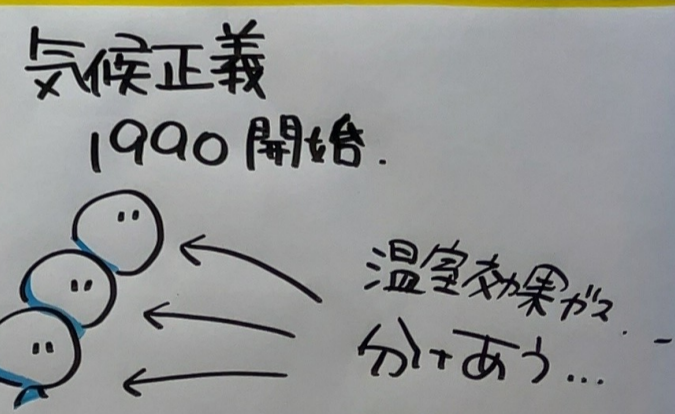 気候正義
1990開始.
温室効果ガス.
分けあう...